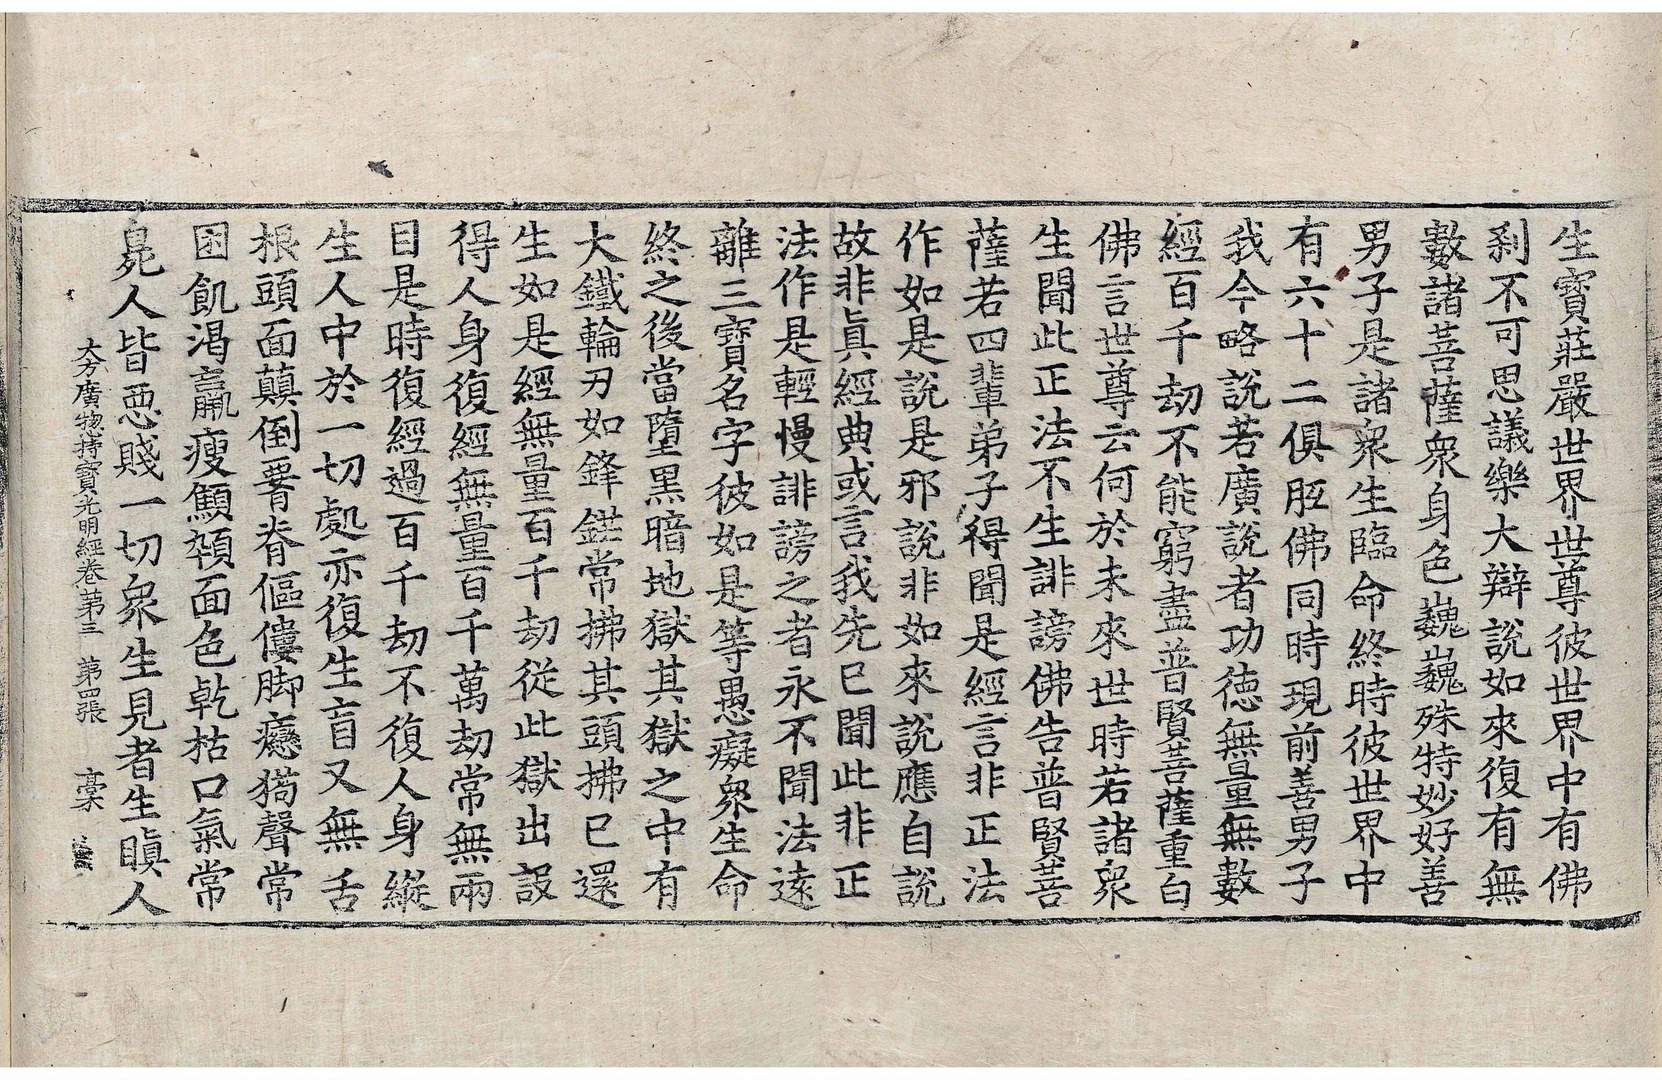 生寶莊嚴世界世尊彼世界中有佛
刹不可思議樂大辯說如來復有無
數諸菩薩衆身色巍巍殊特妙好善
男子是諸衆生臨命終時彼世界中
有六十二俱胝佛同時現前善男子
我今略說若廣說者功德無量無數
經百千劫不能窮盡普賢菩薩重白
佛言世尊云何於未來世時若諸衆
生聞此正法不生誹謗佛告普賢菩
薩若四輩弟子得聞是經言非正法
作如是說是邪說非如來說應自說
故非眞經典或言我先已聞此非正
法作是輕慢誹謗之者永不聞法遠
離三寶名字彼如是等愚癡衆生命
終之後當墮黑暗地獄其獄之中有
大鐵輪刃如鋒鋩常拂其頭拂已還
生如是經無量百千劫從此獄出設
得人身復經無量百千萬劫常無兩
目是時復經過百千劫不復人身縱
生人中於一切處亦復生盲又無舌
根頭面蘔倒𦝫脊傴僂脚癮㺃聲常
困飢渴羸瘦顦顇面色乾枯口氣常
臭人皆惡賤一切衆生見者生瞋人
大方廣揔持寶光明經卷第三　第四張　槀